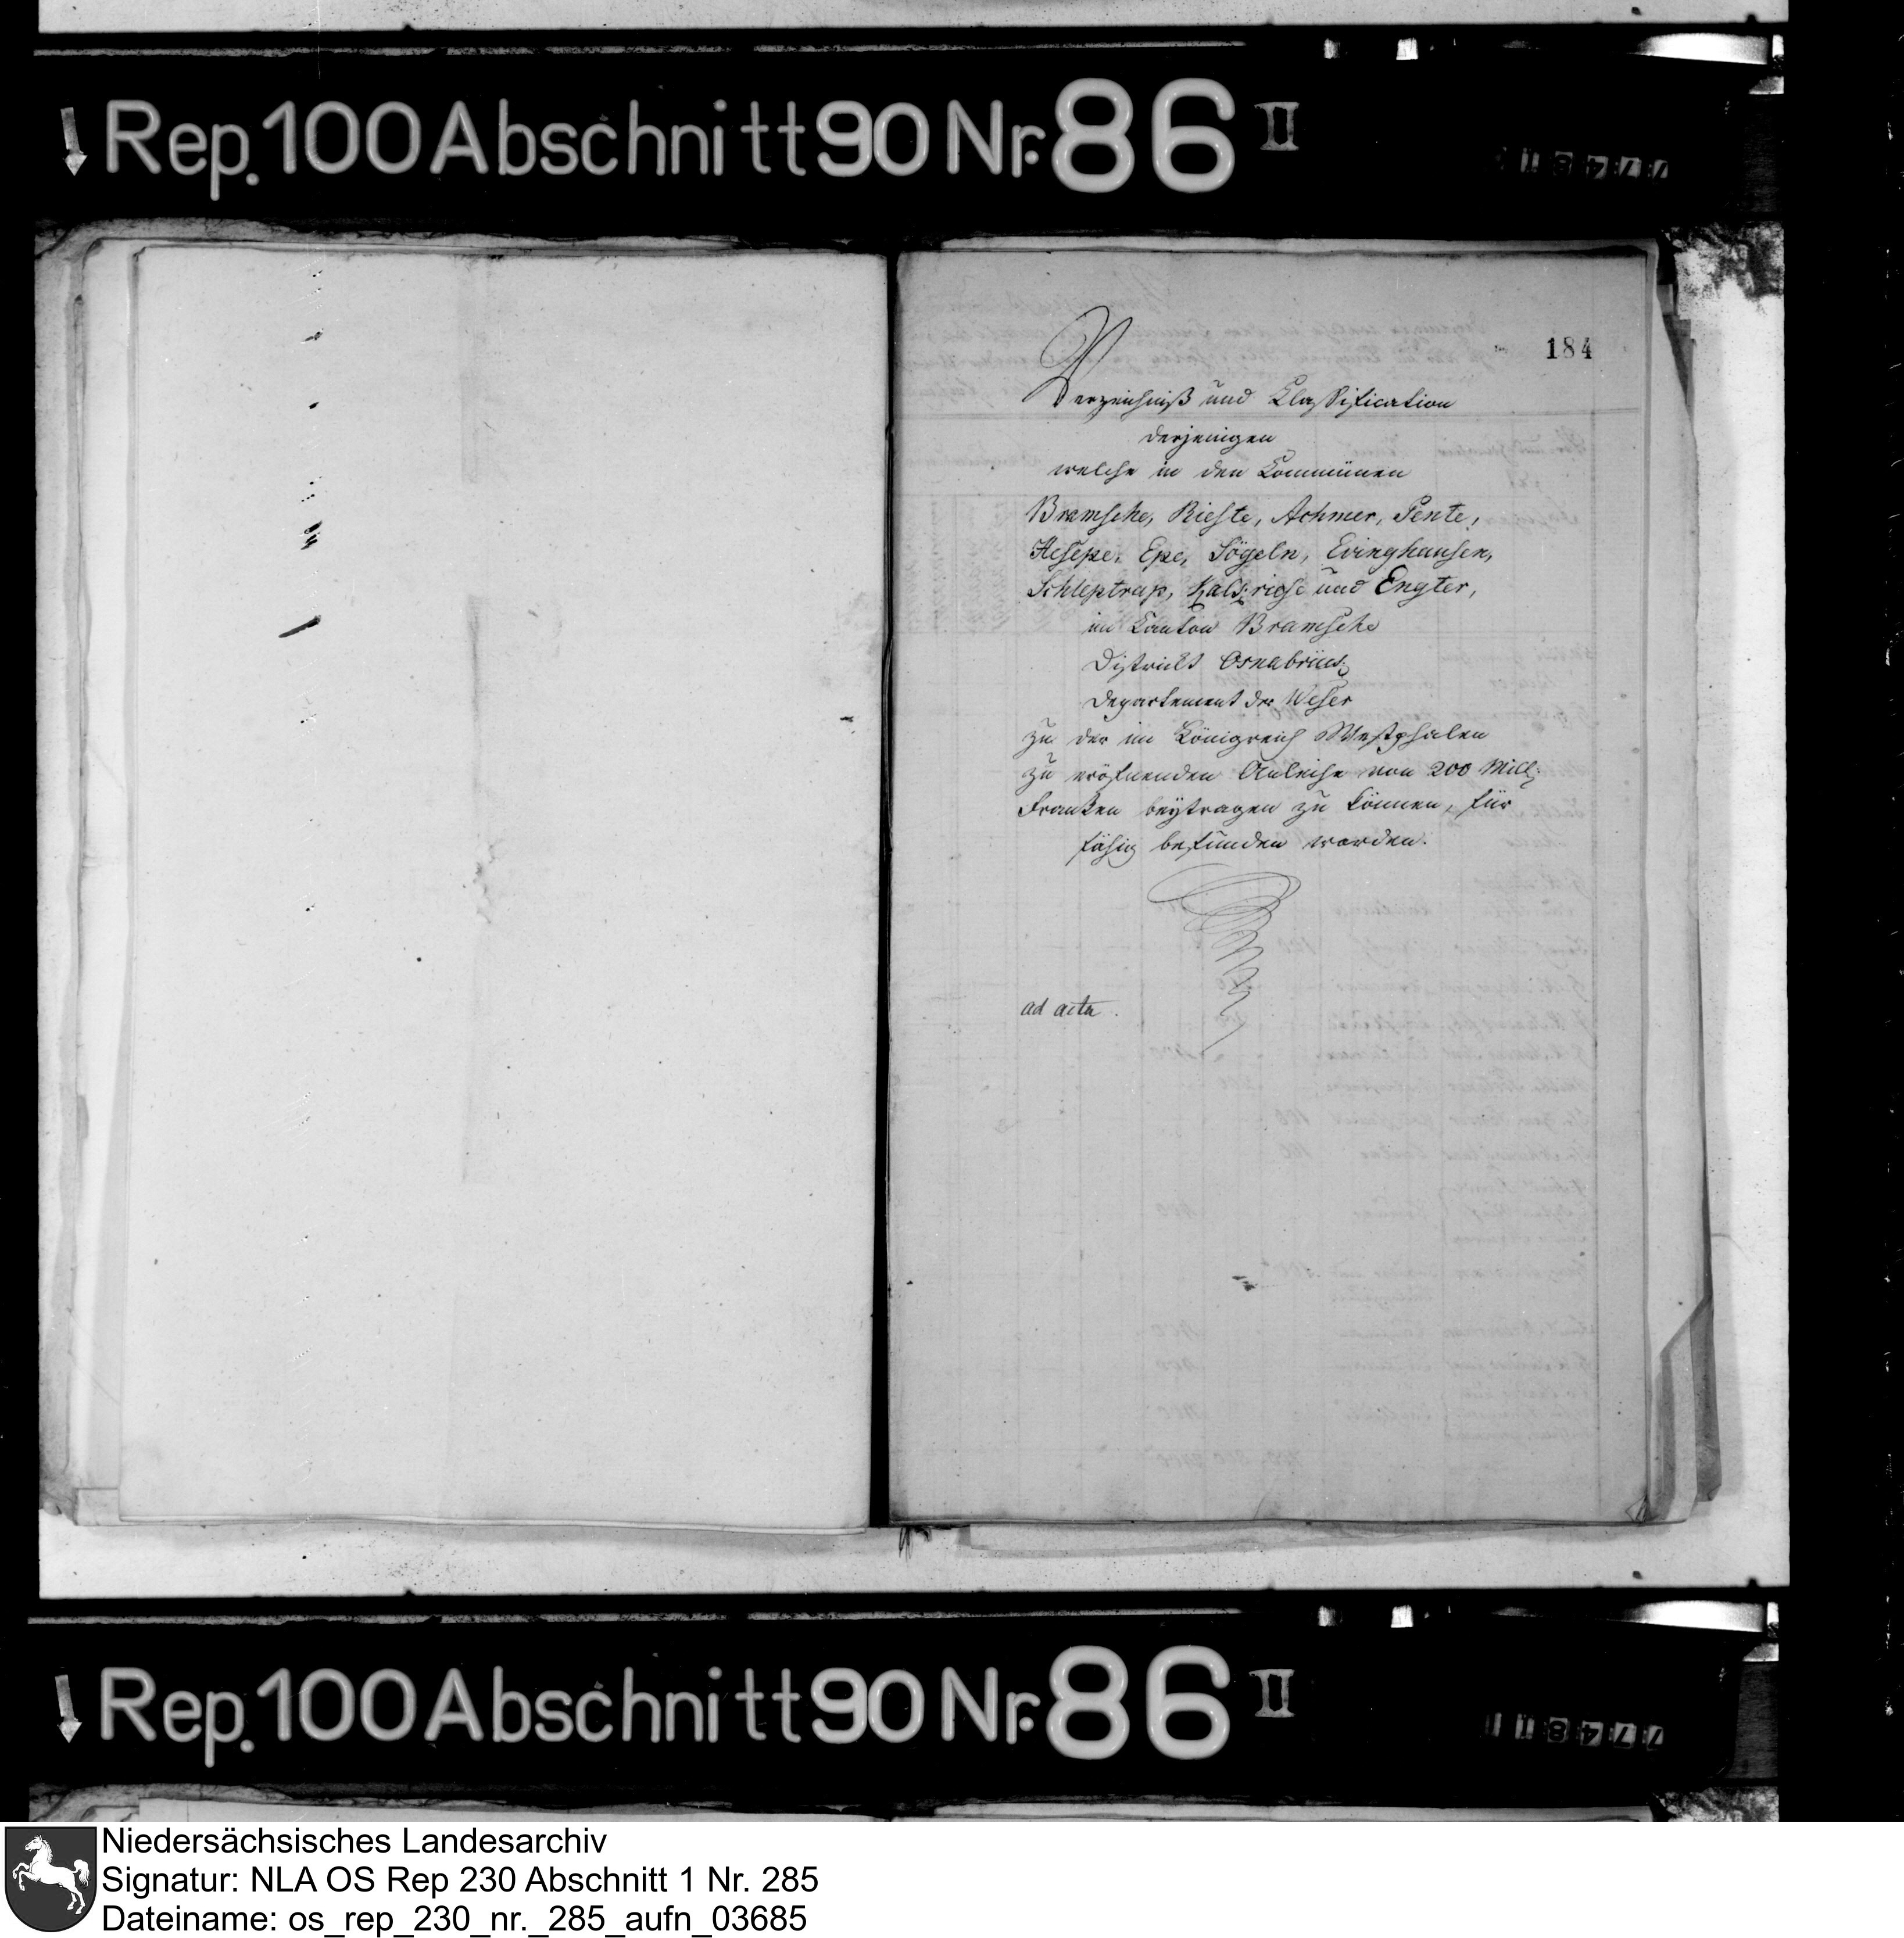 Rep. 100 Abschnitt 90 Nr. 86 II
184
Verzeichniß und Classification
derjenigen
welche in den Communen
Bramsche, Rieste, Achmer, Pente,
Hesepe, Epe, Sögeln, Evinghausen,
Schleptrup, Kalkriese und Engter,
im Canton Bramsche
Districkt Osnabrück
Departement der Weser
zu der im Königreich Westphalen
zu eröfnenden Anleihe von 200 Mill:
Franken beÿtragen zu können, für
fähig befunden worden.
ad acta.
Rep. 100 Abschnitt 90 Nr. 86 II
Niedersächsisches Landesarchiv
Signatur: NLA OS Rep 230 Abschnitt 1 Nr. 285
Dateiname: os_rep_230_nr._285_aufn_03685